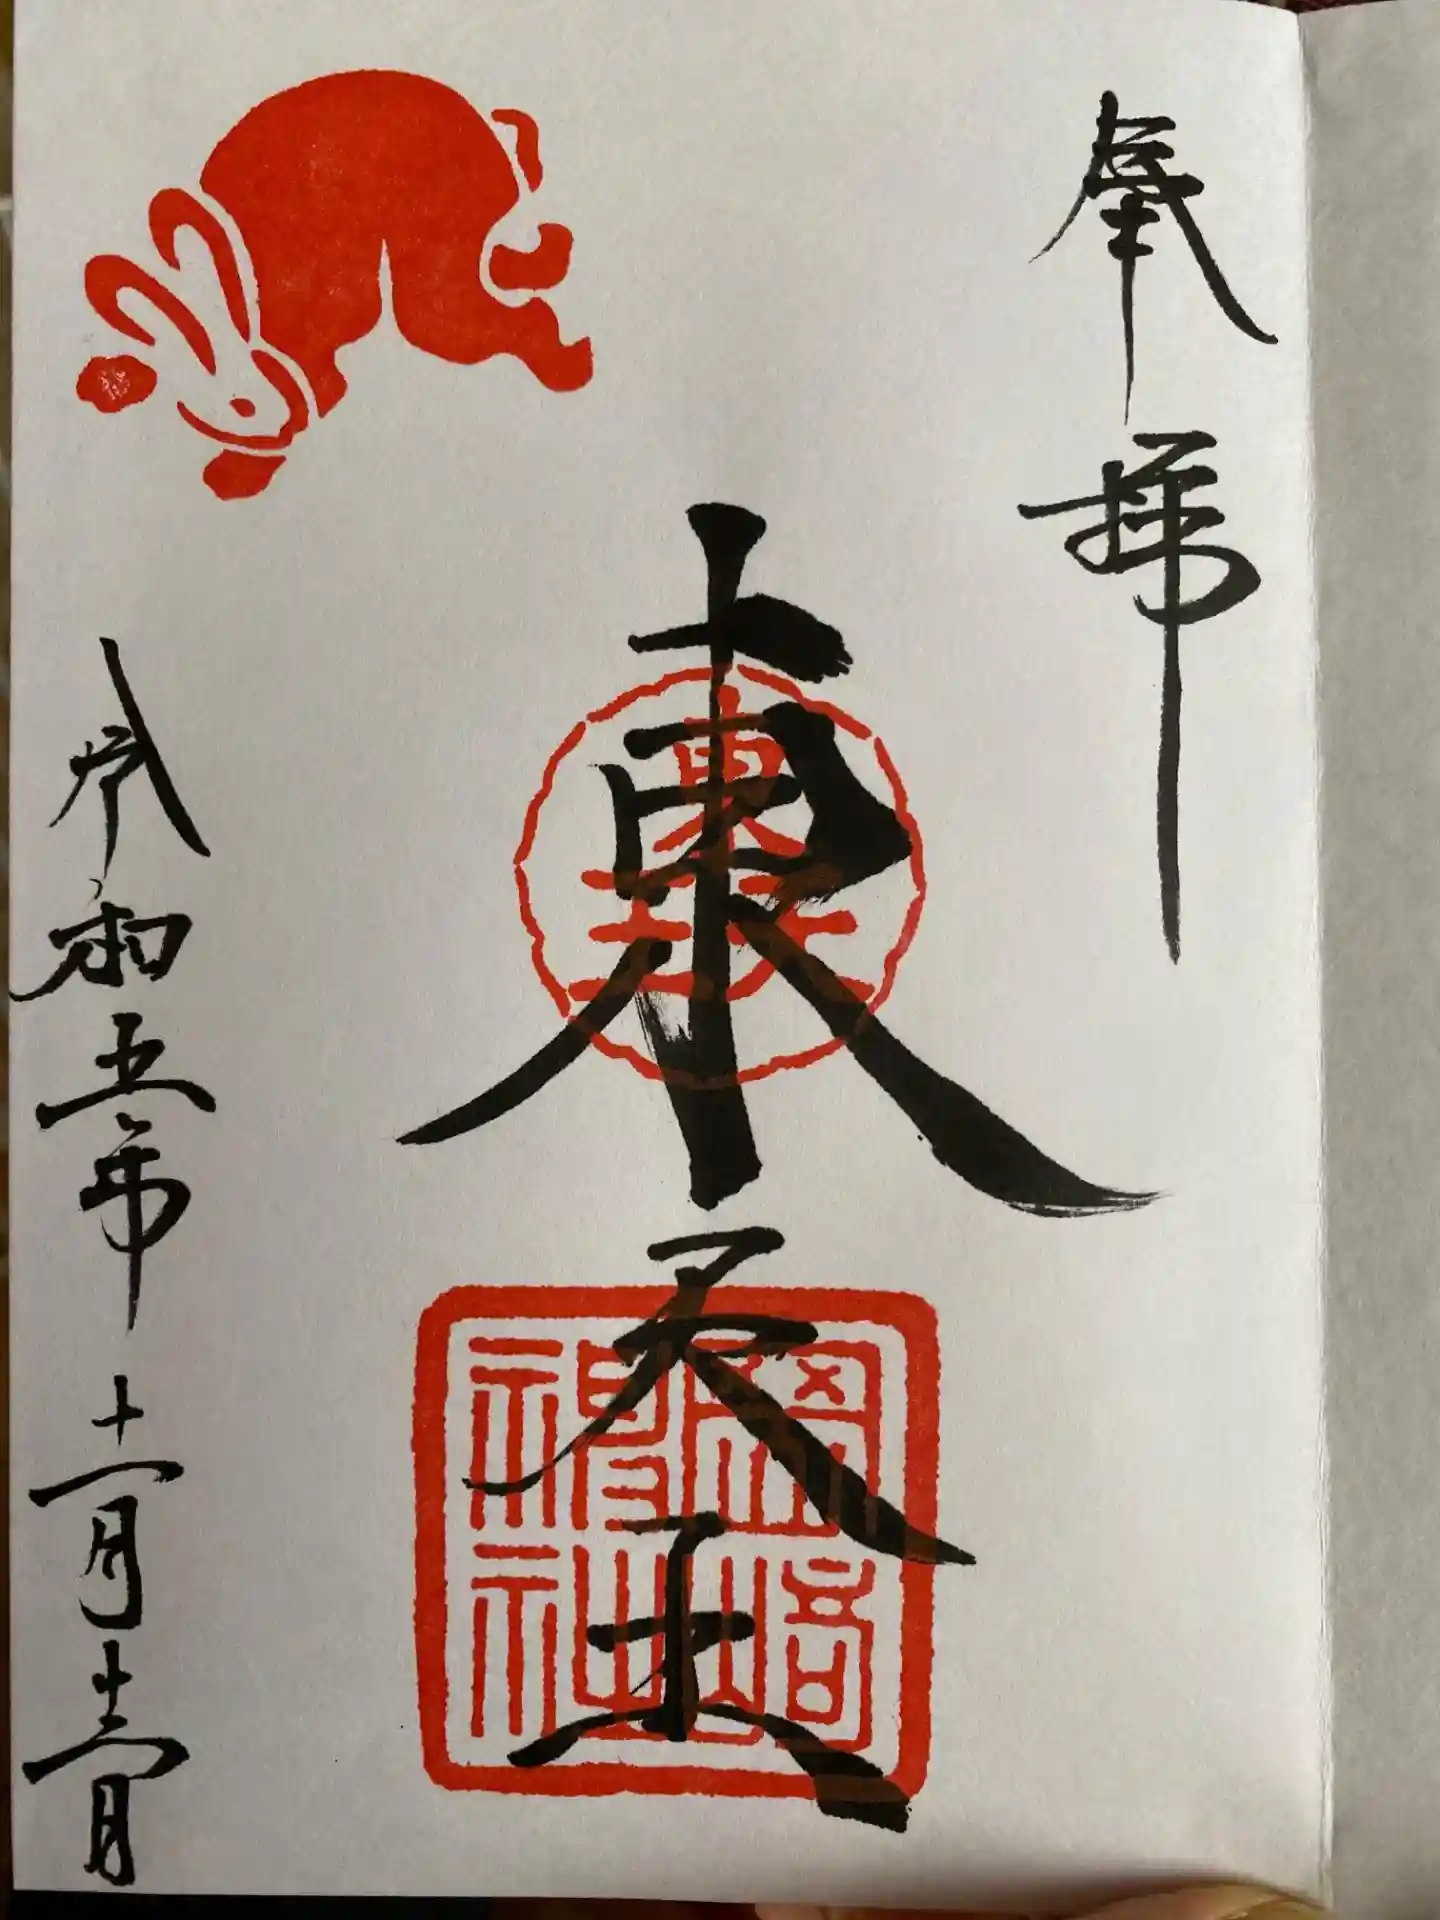 奉拝
東天王
令和五年十一月十三日
東天王
岡崎神社